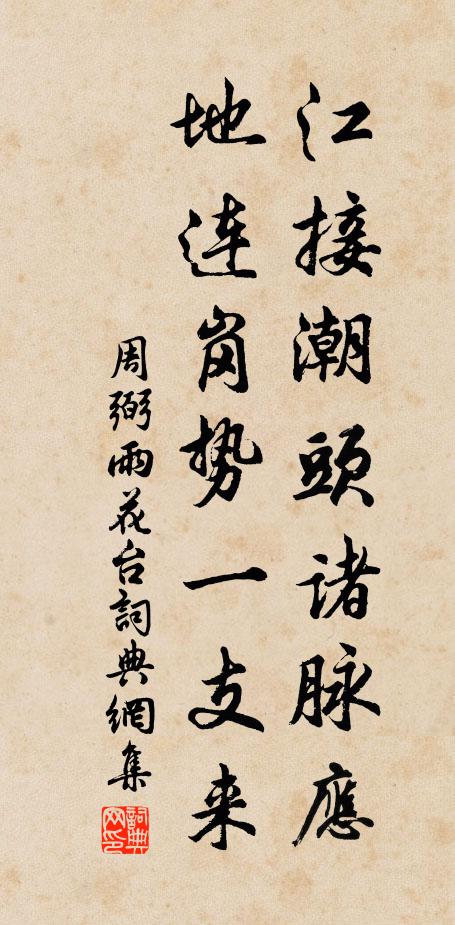 江接潮頭诸脉應
地连岗势一支来
周弼雨花台詞典網集
詞典网印